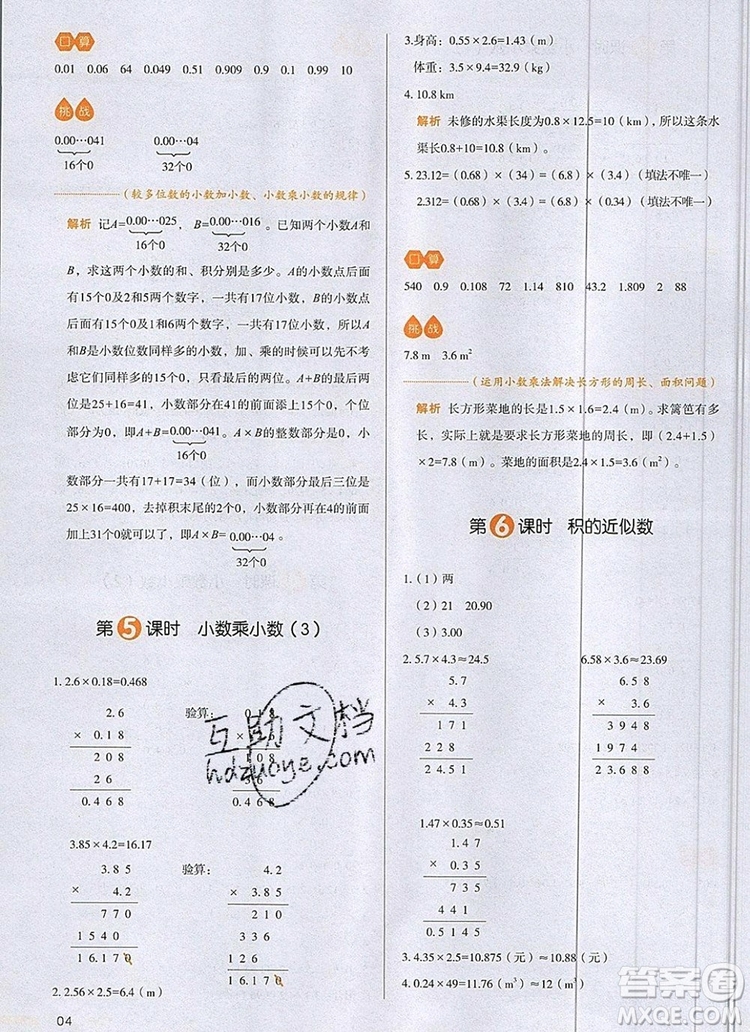 口算
0.01 0.06 64 0.049 0.51 0.909 0.9 0.99 10
挑战
0.00…041 0.00…04
16个0 32个0
(较多位数的小数加小数、小数乘小数的规律)
解析 记A=0.00…025,B=0.00…016。已知两个小数A和
16个0 32个0
B,求这两个小数的和、积分别是多少。A的小数点后面
有15个0及2和5两个数字,一共有17位小数,B的小数点后
面有15个0及1和6两个数字,一共有17位小数,所以A和
B是小数位数同样多的小数,加、乘的时候可以同时去
掉它们同样多的15个0,只看最后的两位。它们最后的两
位是25+16=41,也就是说A+B的小数部分最后两位是
41,其余小数位上都是0,整数部分是0,一共有15+1=16
(个)0,即A+B=0.00…041。A×B的整数部分是0,小
16个0
数部分一共有17+17=34(位),而小数部分最后三位是
25×16=400,去掉积末尾的2个0,小数部分还剩下4及
前面31个0,即A×B=0.00…04。
32个0
第5课时 小数乘小数(3)
1. 2.6×0.18=0.468
2.6 验算: 0.18
× 0.18
208 108
26 36
0.468 0.468
3.85×4.2=16.17
3.85 验算: 4.2
× 4.2 × 3.85
770 210
1540 336
16.170 126
16.170
2. 2.56×2.5=6.4(m)
04
3.身高:0.55×2.6=1.43(m)
体重:3.5×9.4=32.9(kg)
4. 10.8 km
解析 未修的水渠长度为0.8×12.5=10(km),所以这条水
渠长0.8+10=10.8(km)。
5. 23.12=(0.68)×(34)=(6.8)×(3.4)(填法不唯一)
2.312=(0.68)×(3.4)(填法不唯一)
口算
540 0.9 0.108 72 1.14 810 43.2 1.809 2 88
挑战
7.8 m 3.6 m²
(运用小数乘法解决长方形的周长、面积问题)
解析 长方形菜地的长是1.5×1.6=2.4(m)。求篱笆有多
长,实际上就是要求长方形菜地的周长,即(2.4+1.5)
×2=7.8(m)。菜地的面积是2.4×1.5=3.6(m²)。
第6课时 积的近似数
1.(1)两
(2)21 20.90
(3)3.00
2. 5.7×4.3≈24.5 6.58×3.6≈23.69
5.7 6.58
× 4.3 × 3.6
171 3948
228 1974
24.51 23.688
1.47×0.35≈0.51
1.47
× 0.35
735
441
0.5145
3. 4.35×2.5=10.875(元)≈10.88(元)
4. 0.24×49=11.76(m³)≈12(m³)
互助文档
hdzuoye.com
答案圈
MXQE.COM